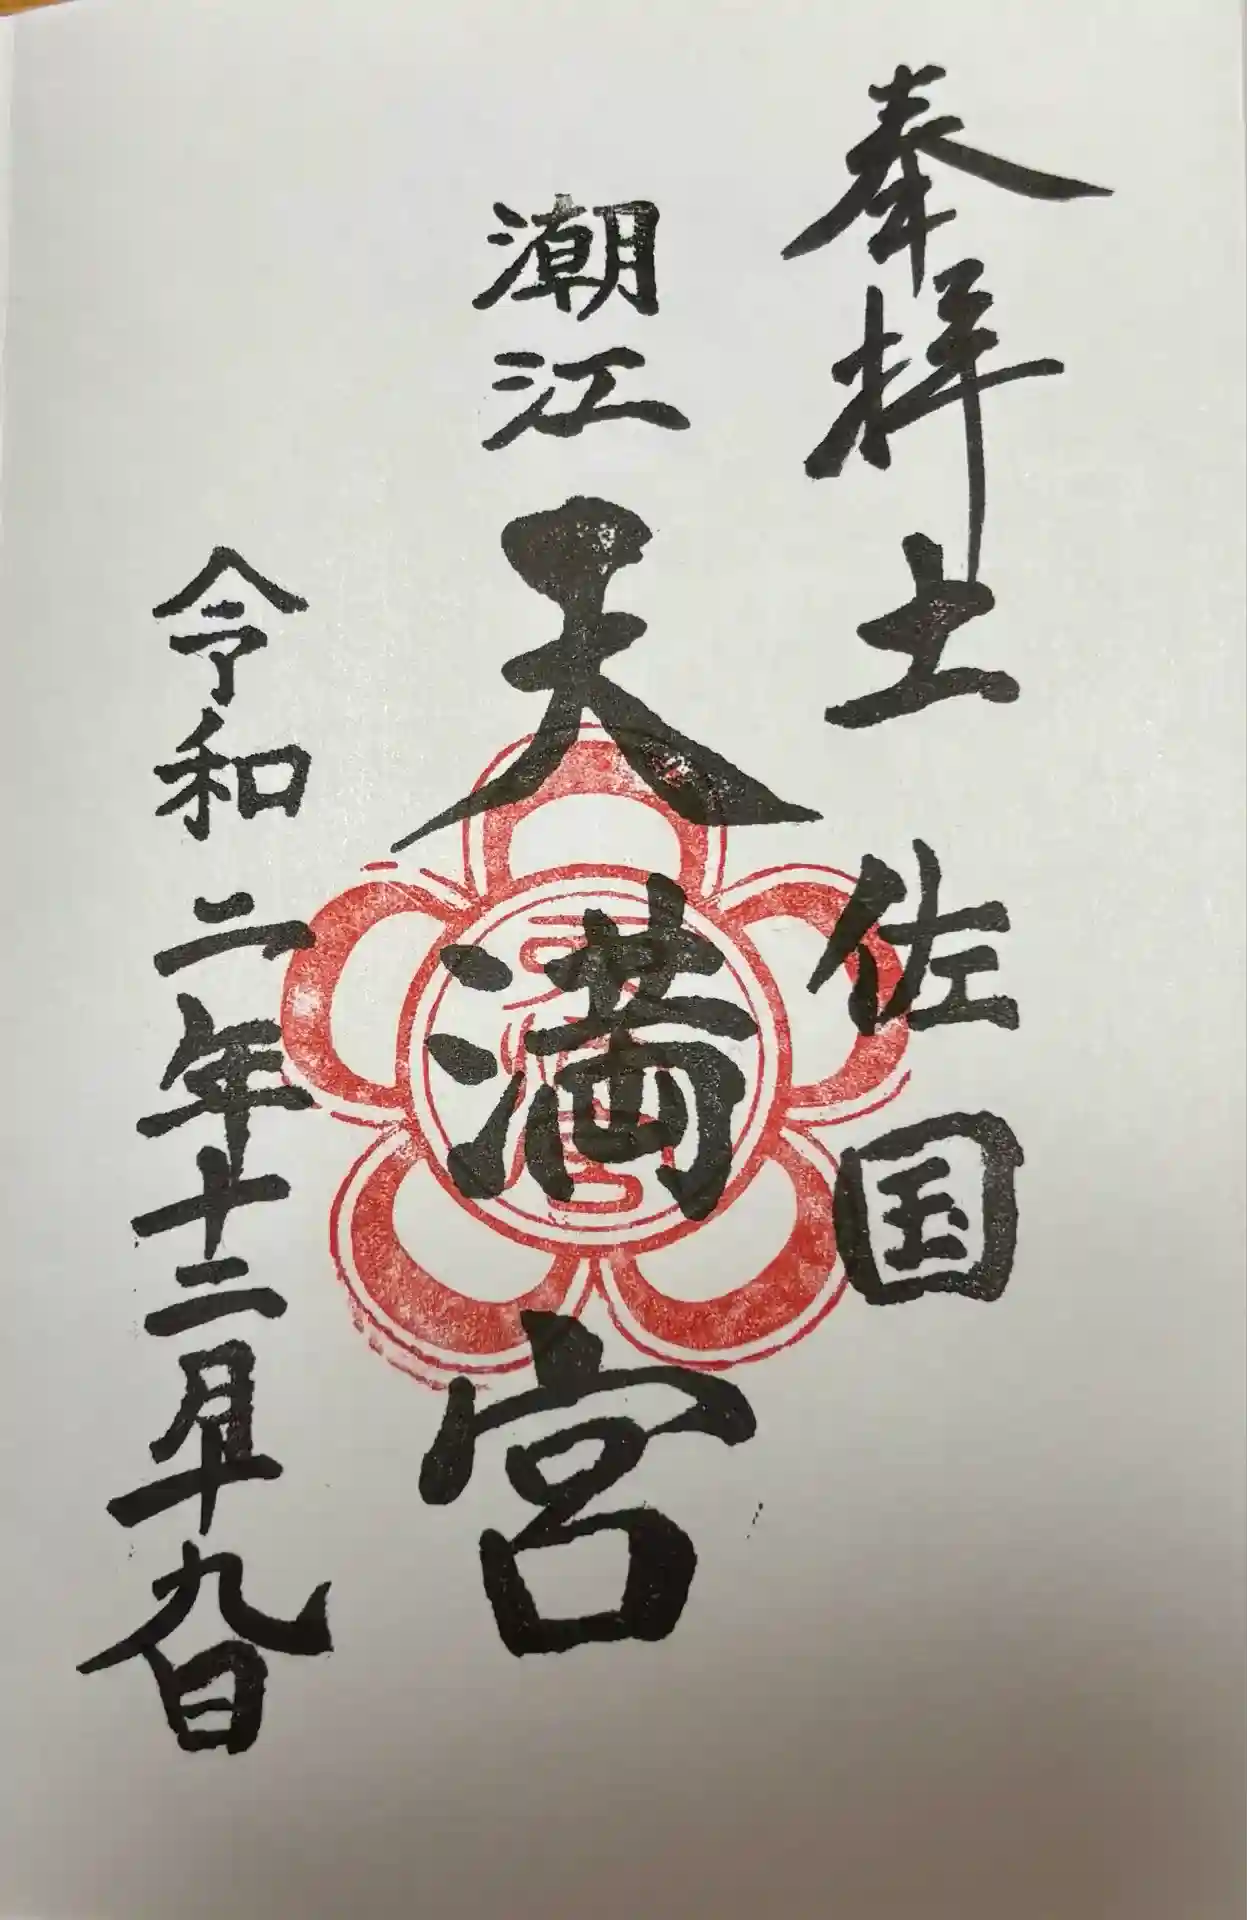 奉拝 土佐国
潮江天満宮
令和二年十二月十九日